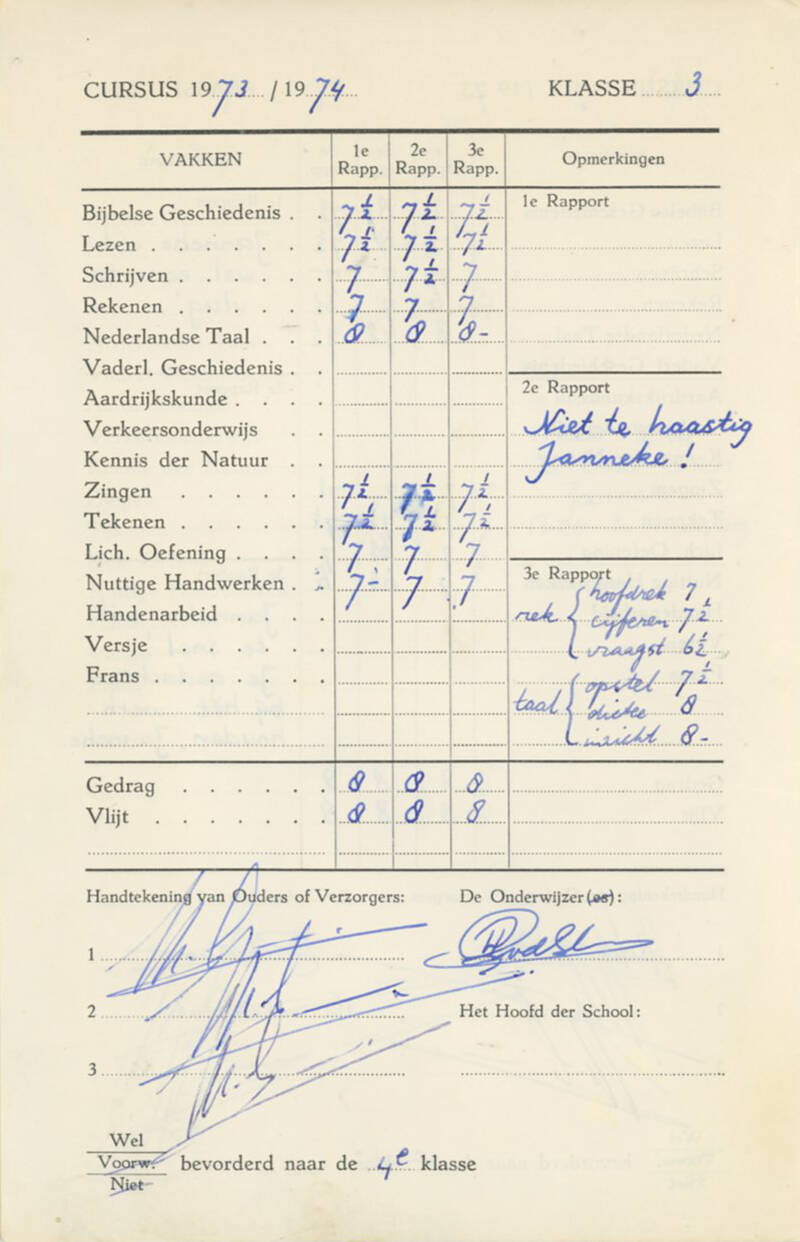 CURSUS 1973 / 1974 KLASSE 3
VAKKEN 1e Rapp. 2e Rapp. 3e Rapp. Opmerkingen
Bijbelse Geschiedenis . . 7½ 7½ 7½ 1e Rapport
Lezen . . . . . . . 7½ 7½ 7½
Schrijven . . . . . . 7 7½ 7
Rekenen . . . . . . 7 7 7
Nederlandse Taal . . . 8 8 8-
Vaderl. Geschiedenis . .
Aardrijkskunde . . . . 2e Rapport
Verkeersonderwijs . . Niet te haastig
Kennis der Natuur . . Janneke !
Zingen . . . . . . 7½ 7½ 7½
Tekenen . . . . . . 7½ 7½ 7½
Lich. Oefening . . . . 7 7 7
Nuttige Handwerken . . 7- 7 7 3e Rapport
hoofdrek 7
Handenarbeid . . . . rek { cijferen 7½
Versje . . . . . . vraagst 6½
Frans . . . . . . . opstel 7½
taal { dictee 8
inzicht 8-
Gedrag . . . . . . 8 8 8
Vlijt . . . . . . . 8 8 8
Handtekening van Ouders of Verzorgers: De Onderwijzer(es) :
1
2 Het Hoofd der School:
3
Wel
Voorw. bevorderd naar de 4e klasse
Niet